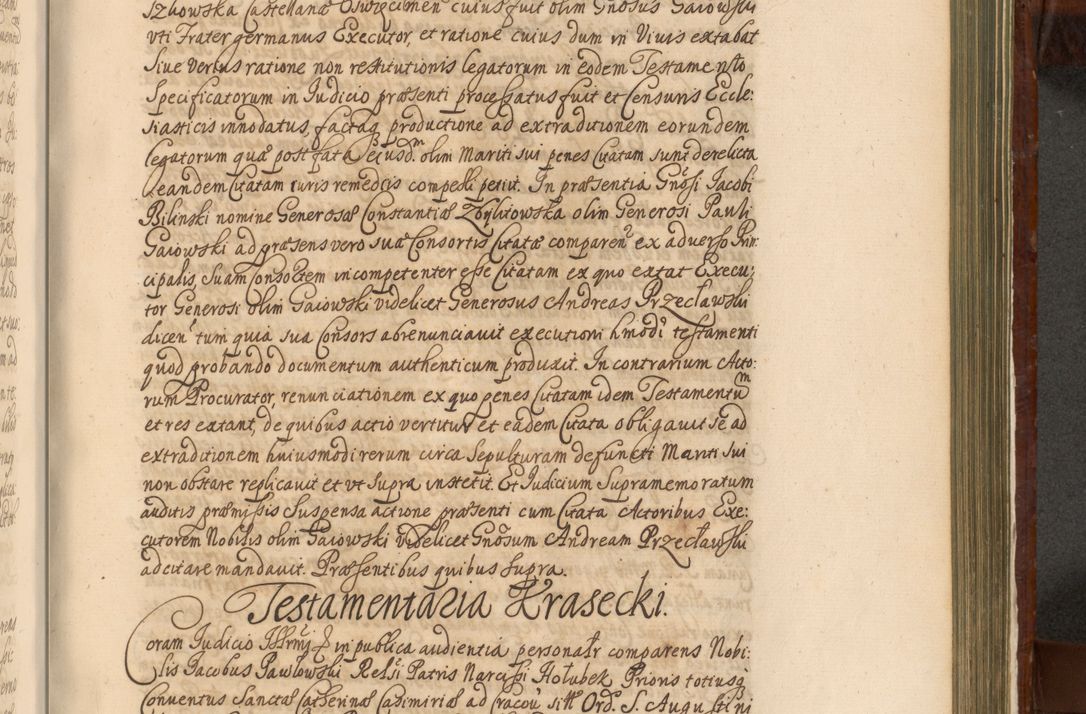 Szkowska Castellana Oswięcimen cuius fuit olim Gnosus Gaiowski
vti Frater germanus Executor, et ratione cuius dum in Viuis extabat
siue verius ratione non restitutionis legatorum in eodem Testamento
specificatorum in Iudicio præsenti processatus fuit et Censuris Eccle:
siasticis innodatus, factaq productione ad extraditionem eorundem
legatorum quæ post fata eiusd.m olim Mariti sui penes Citatam sunt derelicta
eandem Citatam iuris remedijs compelli petijt. In præsentia Gnosi Iacobi
Bilinski nomine Generosæ Constantiæ Zbylitowska olim Generosi Pauli
Gaiowski ad præsens vero suæ Consortis Citatæ comparen ex aduerso Prin:
cipalis, suam Consortem incompetenter esse Citatam ex quo extat Execu:
tor Generosi olim Gaiowski videlicet Generosus Andreas Przecławski
dicen tum quia sua Consors abrenunciauit executioni hmodi testamenti
quod probando documentum authenticum produxit. In contrarium Acto:
rum Procurator, renunciationem ex quo penes Citatam idem Testamentum
et res extant, de quibus actio vertitur et eadem Citata obligauit se ad
extraditionem huiusmodi rerum circa sepulturam defuncti Mariti sui
non obstare replicauit et vt supra institit. Et Iudicium supramemoratum
auditis præmissis suspensa actione præsenti cum Citata Actoribus Exe:
cutorem Nobilis olim Gaiowski videlicet Gnosum Andream Przecławski
adcitare mandauit. Præsentibus quibus supra.
Testamentaria Krasecki.
Coram Iudicio in publica audientia personaltr comparens Nobi:
lis Iacobus Pawlowski Relsi Patris Narcissi Hołubek Prioris totiusq
Conuentus Sanctæ Catherinæ Casimiriæ ad Cracou sitt Ord. S. Augustini